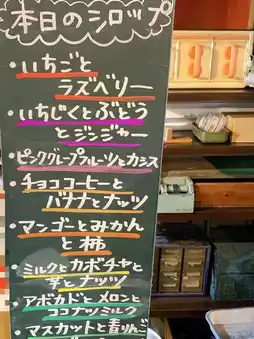 本日のシロップ
・いちごと
ラズベリー
・いちじくとぶどう
とジンジャー
・ピンクグレープフルーツとカシス
・チョココーヒーと
バナナとナッツ
・マンゴーとみかん
と柿
・ミルクとカボチャと
芋とナッツ
・アボカドとメロンと
ココナッツミルク
・マスカットと青りんご